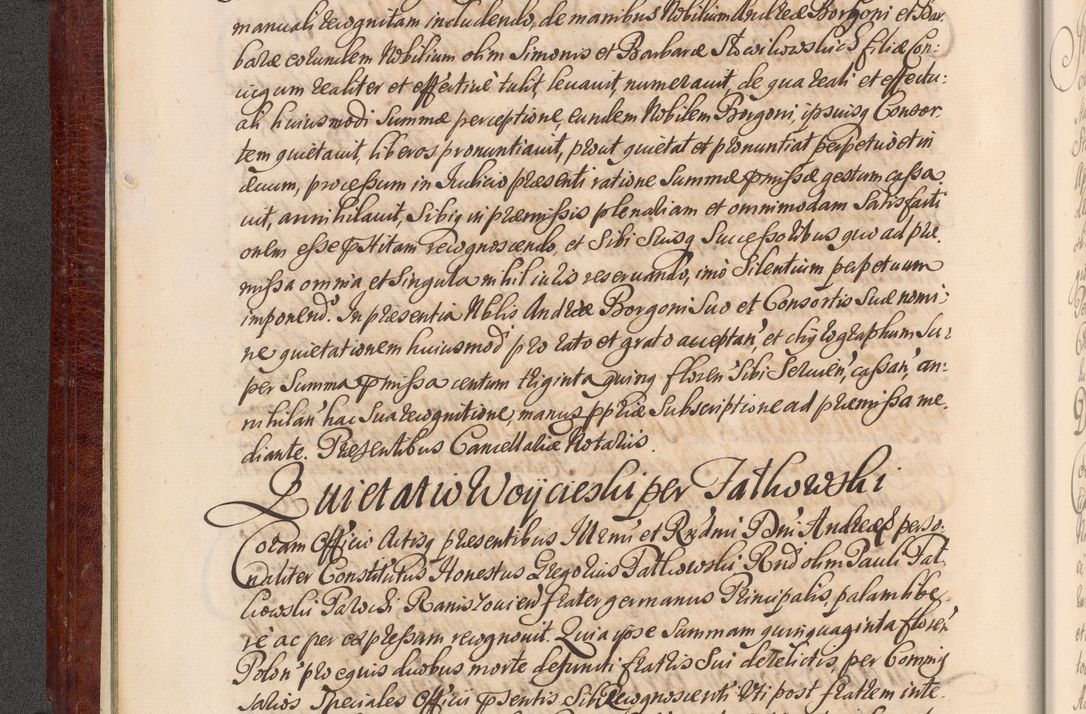 manuali recognitam includendo, de manibus Nobilium Andreæ Borgoni et Bar:
baræ eorundem Nobilium olim Simonis et Barbaræ filiæ Con:
iugum realiter et effective tulit, levavit, numeravit, de qua reali et effectu:
ali huiusmodi Summæ perceptione, eundem Nobilem Borgoni, ipsiusq Consor:
tem quietavit, liberos pronuntiavit, prout quietat et pronuntiat perpetuo et in
ævum, processum in Iudicio præsenti ratione Summæ pmissæ gestum cassa:
vit, annihilavit, Sibiq in præmissis plenariam et omnimodam Satisfacti
onem esse pstitam recognoscendo, et Sibi Suisq Successoribus quo ad præ:
missa omnia et Singula nihil iuris reservando, imo Silentium perpetuum
imponend. In præsentia Nblis Andreæ Borgoni Suo et Consortis Suæ nomi:
ne quietationem huiusmod pro rato et grato acceptan et chyrographum Su:
per Summa pmissa centum triginta quinq floren Sibi Servien, cassan, an:
nihilan hac Sua recognitione, manus ppriæ Subscriptione ad præmissa me:
diante. Præsentibus Cancellariæ Notariis.
Quietatio Woycieski per Fatkowski
Coram Officio Actisq præsentibus Illrmi et Rndmi Dni Andreæ perso:
naliter Constitutus Honestus Gregorius Fatkowski Rnd olim Pauli Fat:
kowski Parochi frater germanus Principalis, palam libe:
re ac per expressum recognovit. Quia ipse Summam quinquaginta floren
Polon pro equis duobus morte defuncti fratris Sui derelictis, per Commis
sarios Speciales Officii psentis Sibi recognoscenti uti post fratrem inte: